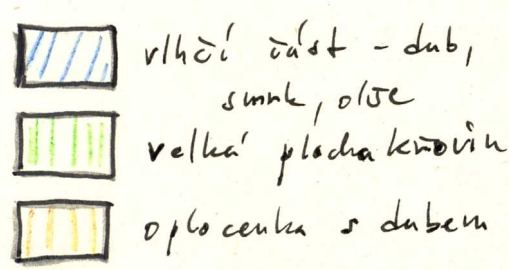 vlhčí část – dub,
smrk, olše
velká plocha křovin
oplocenka s dubem